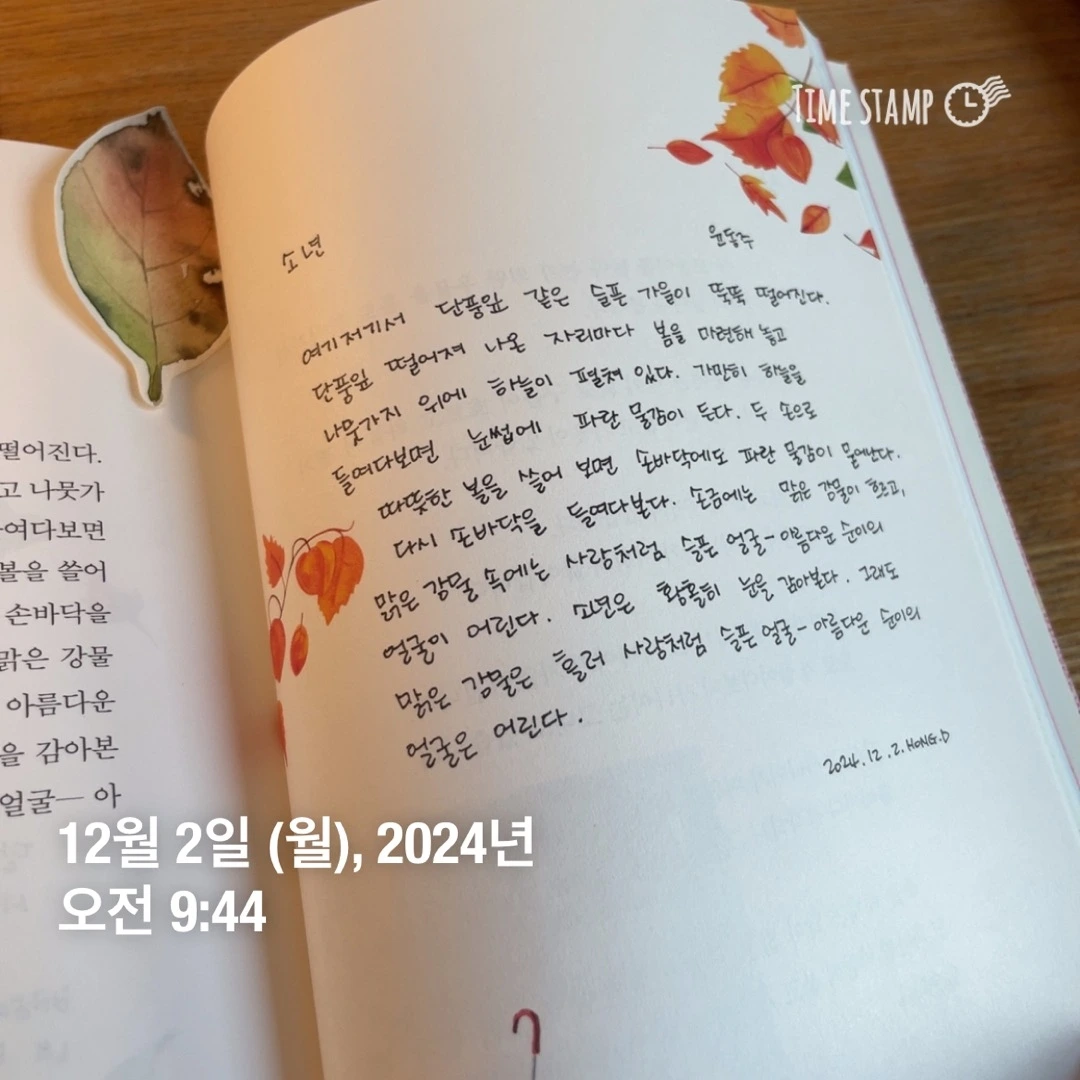 TIME STAMP
소년
윤동주
여기저기서 단풍잎 같은 슬픈 가을이 뚝뚝 떨어진다.
단풍잎 떨어져 나온 자리마다 봄을 마련해 놓고
나뭇가지 위에 하늘이 펼쳐 있다. 가만히 하늘을
들여다보면 눈썹에 파란 물감이 든다. 두 손으로
따뜻한 볼을 쓸어 보면 손바닥에도 파란 물감이 묻어난다.
다시 손바닥을 들여다본다. 손금에는 맑은 강물이 흐르고,
맑은 강물 속에는 사랑처럼 슬픈 얼굴- 아름다운 순이의
얼굴이 어린다. 소년은 황홀히 눈을 감아본다. 그래도
맑은 강물은 흘러 사랑처럼 슬픈 얼굴- 아름다운 순이의
얼굴은 어린다.
2024.12.2. HONG.D
떨어진다.
고 나뭇가
여다보면
볼을 쓸어
손바닥을
맑은 강물
아름다운
을 감아본
얼굴— 아
12월 2일 (월), 2024년
오전 9:44